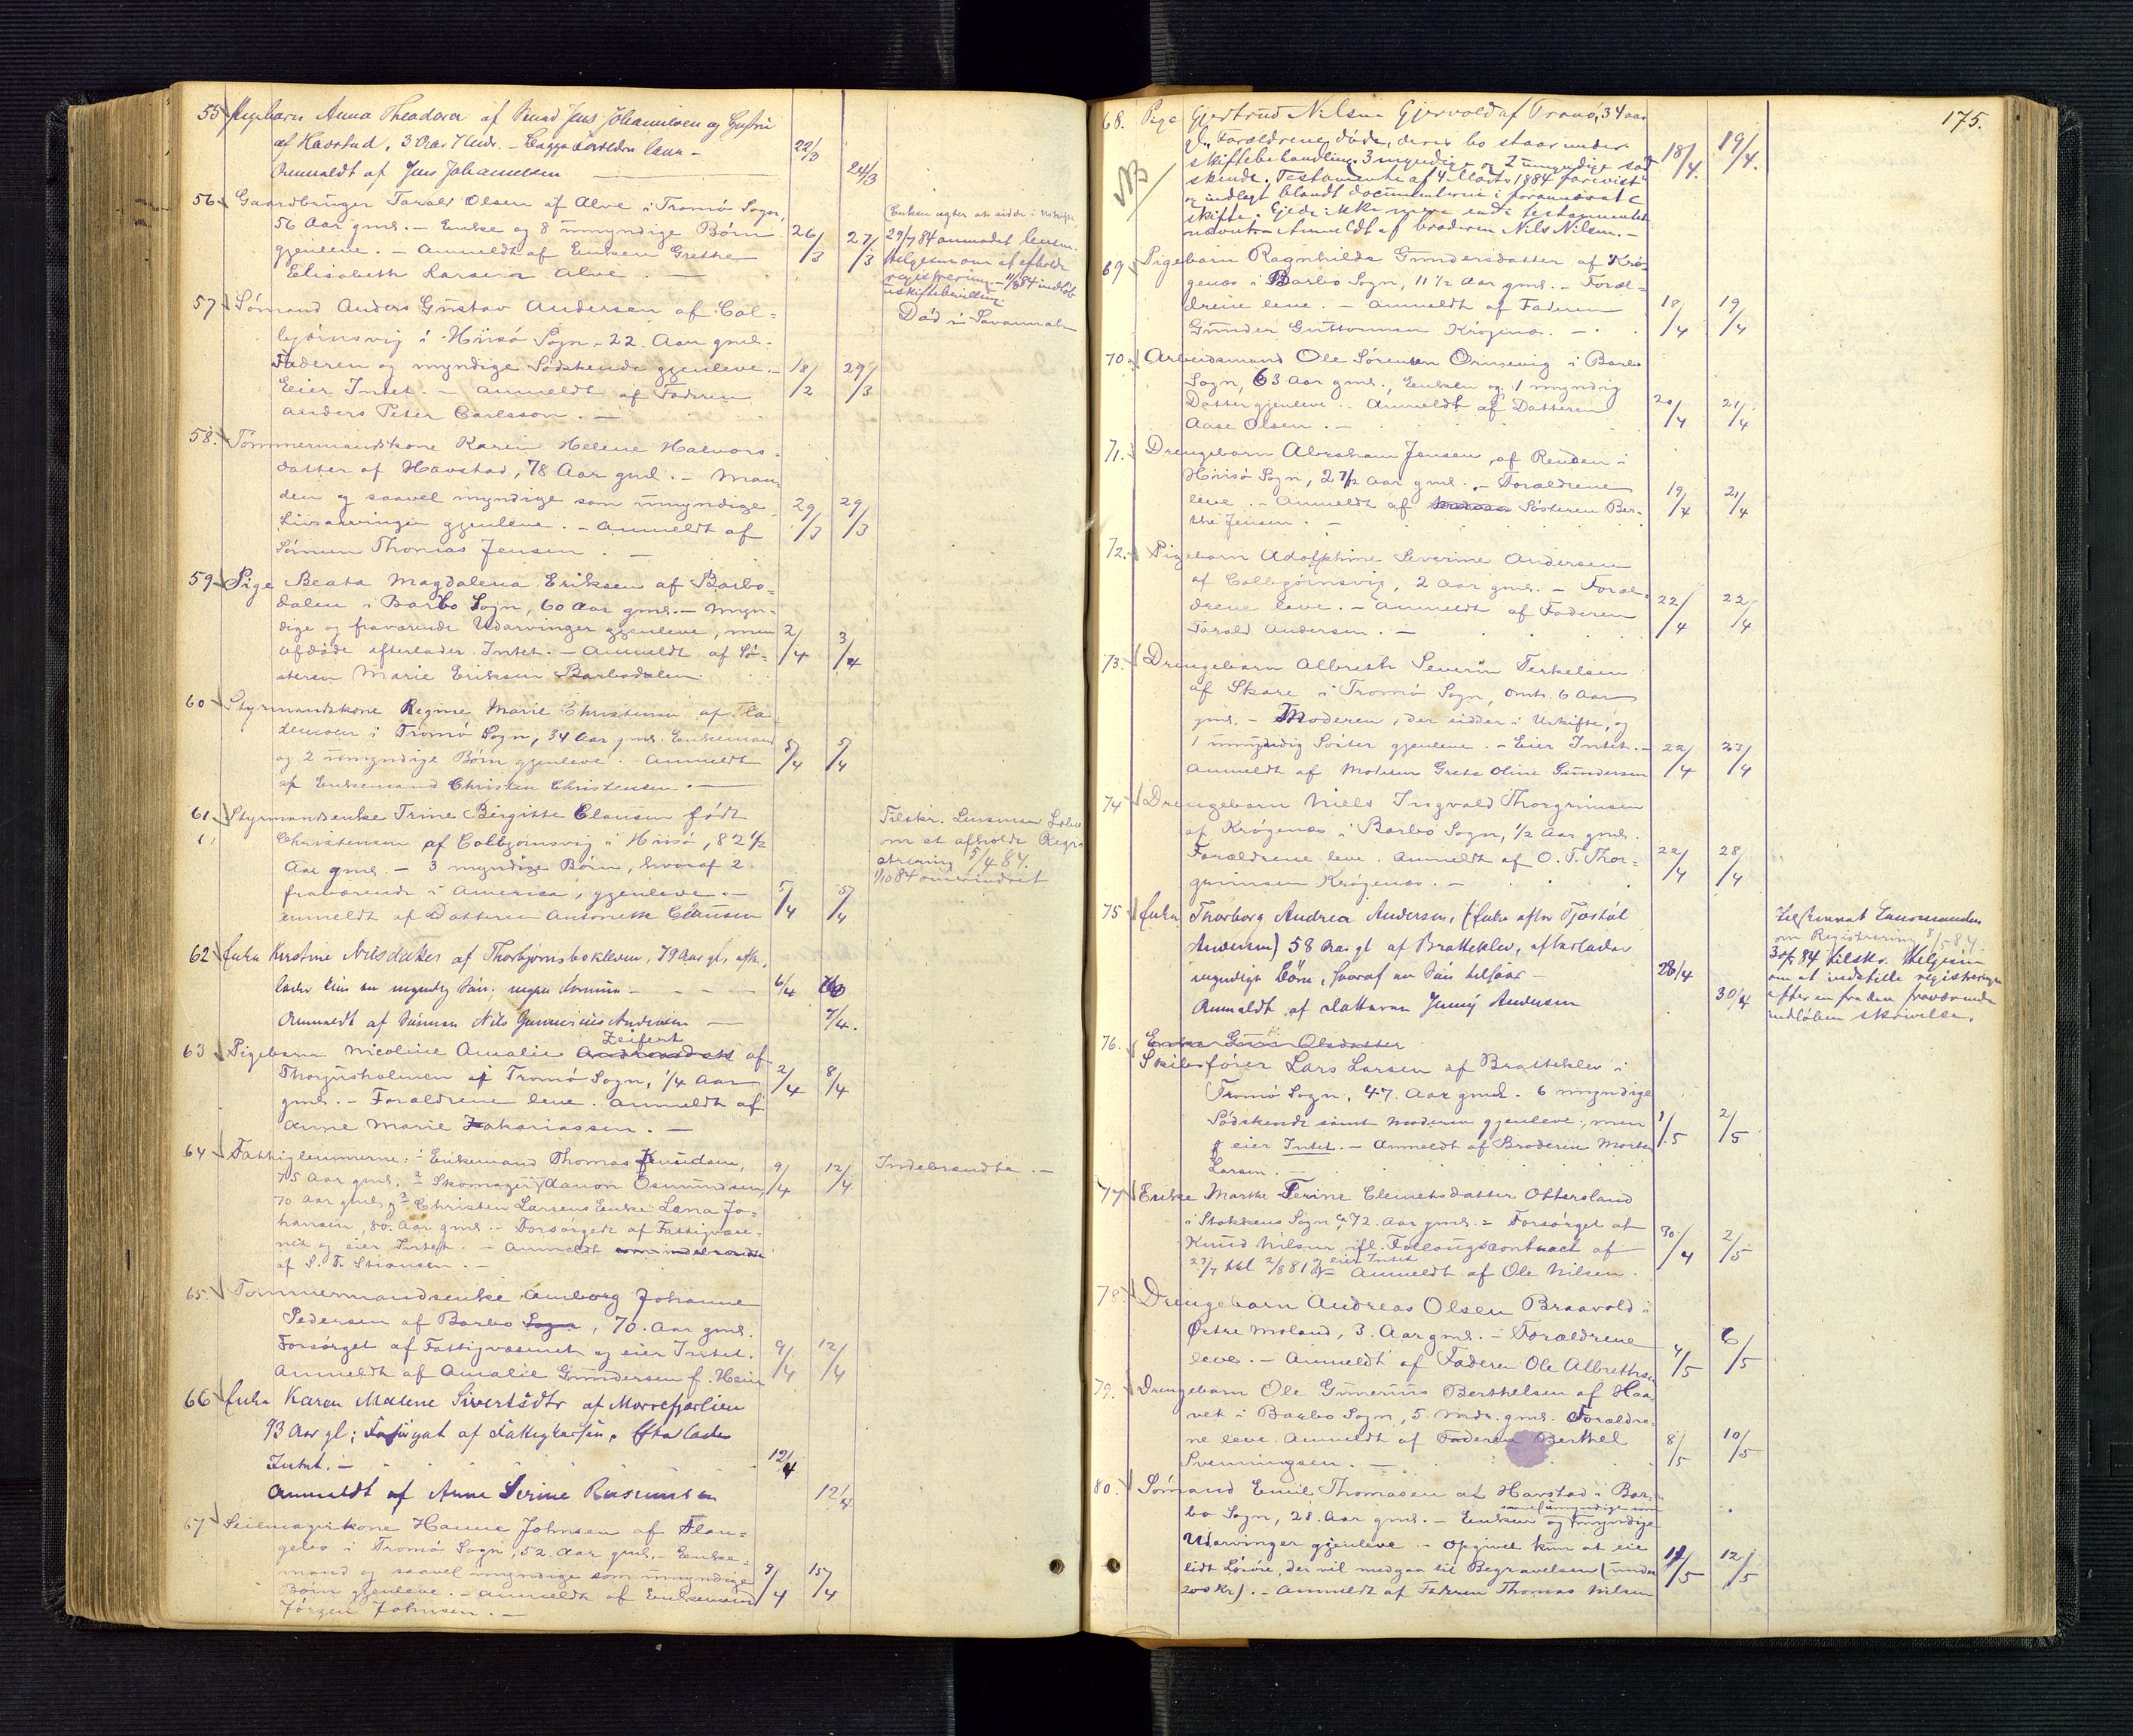 55 Pigebarn Anna Theodora af Smed Jens Johannesen og Hustru
af Havstad, 3 Aar 7 Mdr. - Begge Forældre leve - 22/3
Anmeldt af Jens Johannesen 24/3
56 Gaardbruger Tarald Olsen af Alve i Tromø Sogn,
56 Aar gml. - Enke og 8 umyndige Børn 26/3 27/3
gjenleve. - Anmeldt af Enken Grethe
Elisabeth Larsen Alve. -
Enken agter at sidde i Uskifte,
29/7 84 anmodet lensm.
Helgesen om at afholde
registrering. - 11/8 84 indløb
uskiftebevilling.
57 Sømand Anders Gustav Andersen af Col=
bjørnsvig i Hisø Sogn - 22 Aar gml. -
Faderen og myndige Sødskende gjenleve. - 18/2 29/3
Eier Intet. - Anmeldt af Faderen
Anders Peter Carlsson. -
Død i Savannah
58. Tømmermandskone Karen Helene Halvors=
datter af Havstad, 78 Aar gml. - Man=
den og saavel myndige som umyndige 29/3 29/3
Livsarvinger gjenleve. - Anmeldt af
Sønnen Thomas Jensen. -
59 Pige Beata Magdalena Eriksen af Barbo=
dalen i Barbo Sogn, 60 Aar gml. - Myn=
dige og fraværende Udarvinger gjenleve, men 2/4 3/4
afdøde efterlader Intet. - Anmeldt af Sø=
steren Marie Eriksen Barbodalen
60 Styrmandskone Regine Marie Christensen af Fla=
densen i Tromø Sogn, 34 Aar gml. Enkemand
og 2 umyndige Børn gjenleve. - Anmeldt 5/4 5/4
af Enkemand Christen Christensen. -
61 Styrmandsenke Trine Birgitte Clausen født
Christensen af Colbjørnsvig i Hisø, 82 1/2
Aar gml. - 3 myndige Børn, hvoraf 2
fraværende i America, gjenleve. -
Anmeldt af Datteren Antonette Clausen 5/4 5/4
Tilskr. Lensmand
om at afholde Regi=
strering 5/4 84.
1/10 84 omerindret
62 Enke Kirstine Nilsdatter af Thorbjørnsbokleven, 79 Aar gl., efter=
lader kun en myndig Søn, ingen Formue - 6/4
Anmeldt af Sønnen Nils Andersen - 7/4.
63 Pigebarn Nicoline Amalie Zeifert af
Thorjusholmen af Tromø Sogn, 1/4 Aar 2/4 8/4
gml. - Forældrene leve. Anmeldt af
Anne Marie Zakariassen. -
64 Fattiglemmerne: 1 Enkemand Thomas Knudsen,
75 Aar gml. 2 Skomager Aanon Osmundsen, 9/4 12/4
70 Aar gml. og 3 Christen Larsens Enke Lena Jo=
hansen, 80. Aar gml. - Forsørgede af Fattigvæse=
net og eier Intet. - Anmeldt som indebrændte
af S. T. Stiansen. -
Indebrændte. -
65. Tømmermandsenke Amborg Johanne
Pedersen af Barbo Sogn, 70. Aar gml.
Forsørget af Fattigvæsenet og eier Intet. 9/4 12/4
Anmeldt af Amalie Gundersen f. Hein
66 Enke Karen Malene Sivertsdtr af Morrefjærlien
93 Aar gl; Forsørget af Fattigkassen, Efterlader
Intet. - 12/4
Anmeldt af Anne Serine Rasmussen 12/4
67 Seilmagerkone Hanne Johnsen af Flan=
gebo i Tromø Sogn, 52. Aar gml. - Enke=
mand og saavel myndige som umyndige 9/4 15/4
Børn gjenleve. - Anmeldt af Enkemand
Jørgen Johnsen. -
175.
68. Pige Gjertrud Nilsen Gjervold af Tromø, 34 aar
gl. Forældrene døde, deres bo staar under
skiftebehandling. 3 myndige og 2 umyndige sød 18/4. 19/4.
skende. Testamente af 4 Marts 1884 forevist
og indlagt blandt documenterne i forannævnte
skifte. Eiede ikke mere end i testamentet
nævnt. - Anmeldt af broderen Nils Nilsen. -
NB
69 Pigebarn Ragnhilda Gundersdatter af Krø=
genæs i Barbo Sogn, 11 1/2 Aar gml. - Foræl=
drene leve. - Anmeldt af Faderen 18/4 19/4
Gunder Guttormsen Krøgenæs. -
70. Arbeidsmand Ole Sørensen Ormevig i Barbo
Sogn, 63 Aar gml., Enken og 1 myndig
Datter gjenleve. - Anmeldt af Datteren 20/4 21/4
Aase Olsen. -
71. Drengebarn Abraham Jensen af Renden i
Hisø Sogn, 2 7/12 Aar gml. - Forældrene
leve. - Anmeldt af Søsteren Ber= 19/4 21/4
the Jensen. -
72. Pigebarn Adolphine Severine Andersen
af Colbjørnsvig, 2 Aar gml. - Foræl=
drene leve. - Anmeldt af Faderen 22/4 22/4
Tarald Andersen. -
73. Drengebarn Albreth Severin Terkelsen
af Skare i Tromø Sogn, omtr. 6 Aar
gml. - Moderen, der sidder i Uskifte, og
1 umyndig Søster gjenleve. - Eier Intet. - 22/4 23/4
Anmeldt af Moderen Grete Oline Gundersen
74 Drengebarn Niels Ingvald Thorgrimsen
af Krøgenæs i Barbo Sogn, 1/2 Aar gml.
Forældrene leve. Anmeldt af O. T. Thor= 22/4 28/4
grimsen Krøgenæs. -
75 Enke Thorborg Andrea Andersen, (Enke efter Tjøstol
Andersen) 58 Aar gl af Bratteklev, efterlader
myndige Børn, hvoraf en Søn tilsjøs - 28/4
Anmeldt af Datteren Jenny Andersen 30/4
Tilskrevet Lensmanden
om Registrering 8/5 84.
30/5 84 tilskr. Helgesen
om at indstille registreringen
efter en fra den fraværende
indløben skrivelse.
76. Enke Guri Olsdatter
Skibsfører Lars Larsen af Bratteklev i
Tromø Sogn, 47. Aar gml. 6 myndige
Sødskende samt Moderen gjenleve, men 1/5 2/5
eier Intet. - Anmeldt af Broderen Morten
Larsen. -
77 Enke Marthe Terine Clemetsdatter Ottersland
i Stokkens Sogn, ca 72. Aar gml. - Forsørget af
Knud Nilsen ifl. Føllaugscontract af 30/4 2/5
27/7 tbl 2/8 81 og eier Intet - Anmeldt af Ole Nilsen.
78 Drengebarn Andreas Olsen Braavold i
Østre Moland, 3. Aar gml. - Forældrene 6/5
leve. - Anmeldt af Faderen Ole Albrethsen 4/5
79. Drengebarn Ole Gunerius Berthelsen af Haa=
vet i Barbo Sogn, 5. Mdr. gml. Forældre=
ne leve. Anmeldt af Faderen Berthel 8/5 10/5
Svenningsen. -
80. Sømand Emil Thomasen af Havstad i Bar=
bo Sogn, 28. Aar gml. - Enken og saavel umyndige som myndige
Udarvinger gjenleve. - Opgivet kun at eie
lidt Løsøre, der vil medgaa til Begravelsen (under 11/5 12/5
200 Kr). - Anmeldt af Faderen Thomas Nilsen